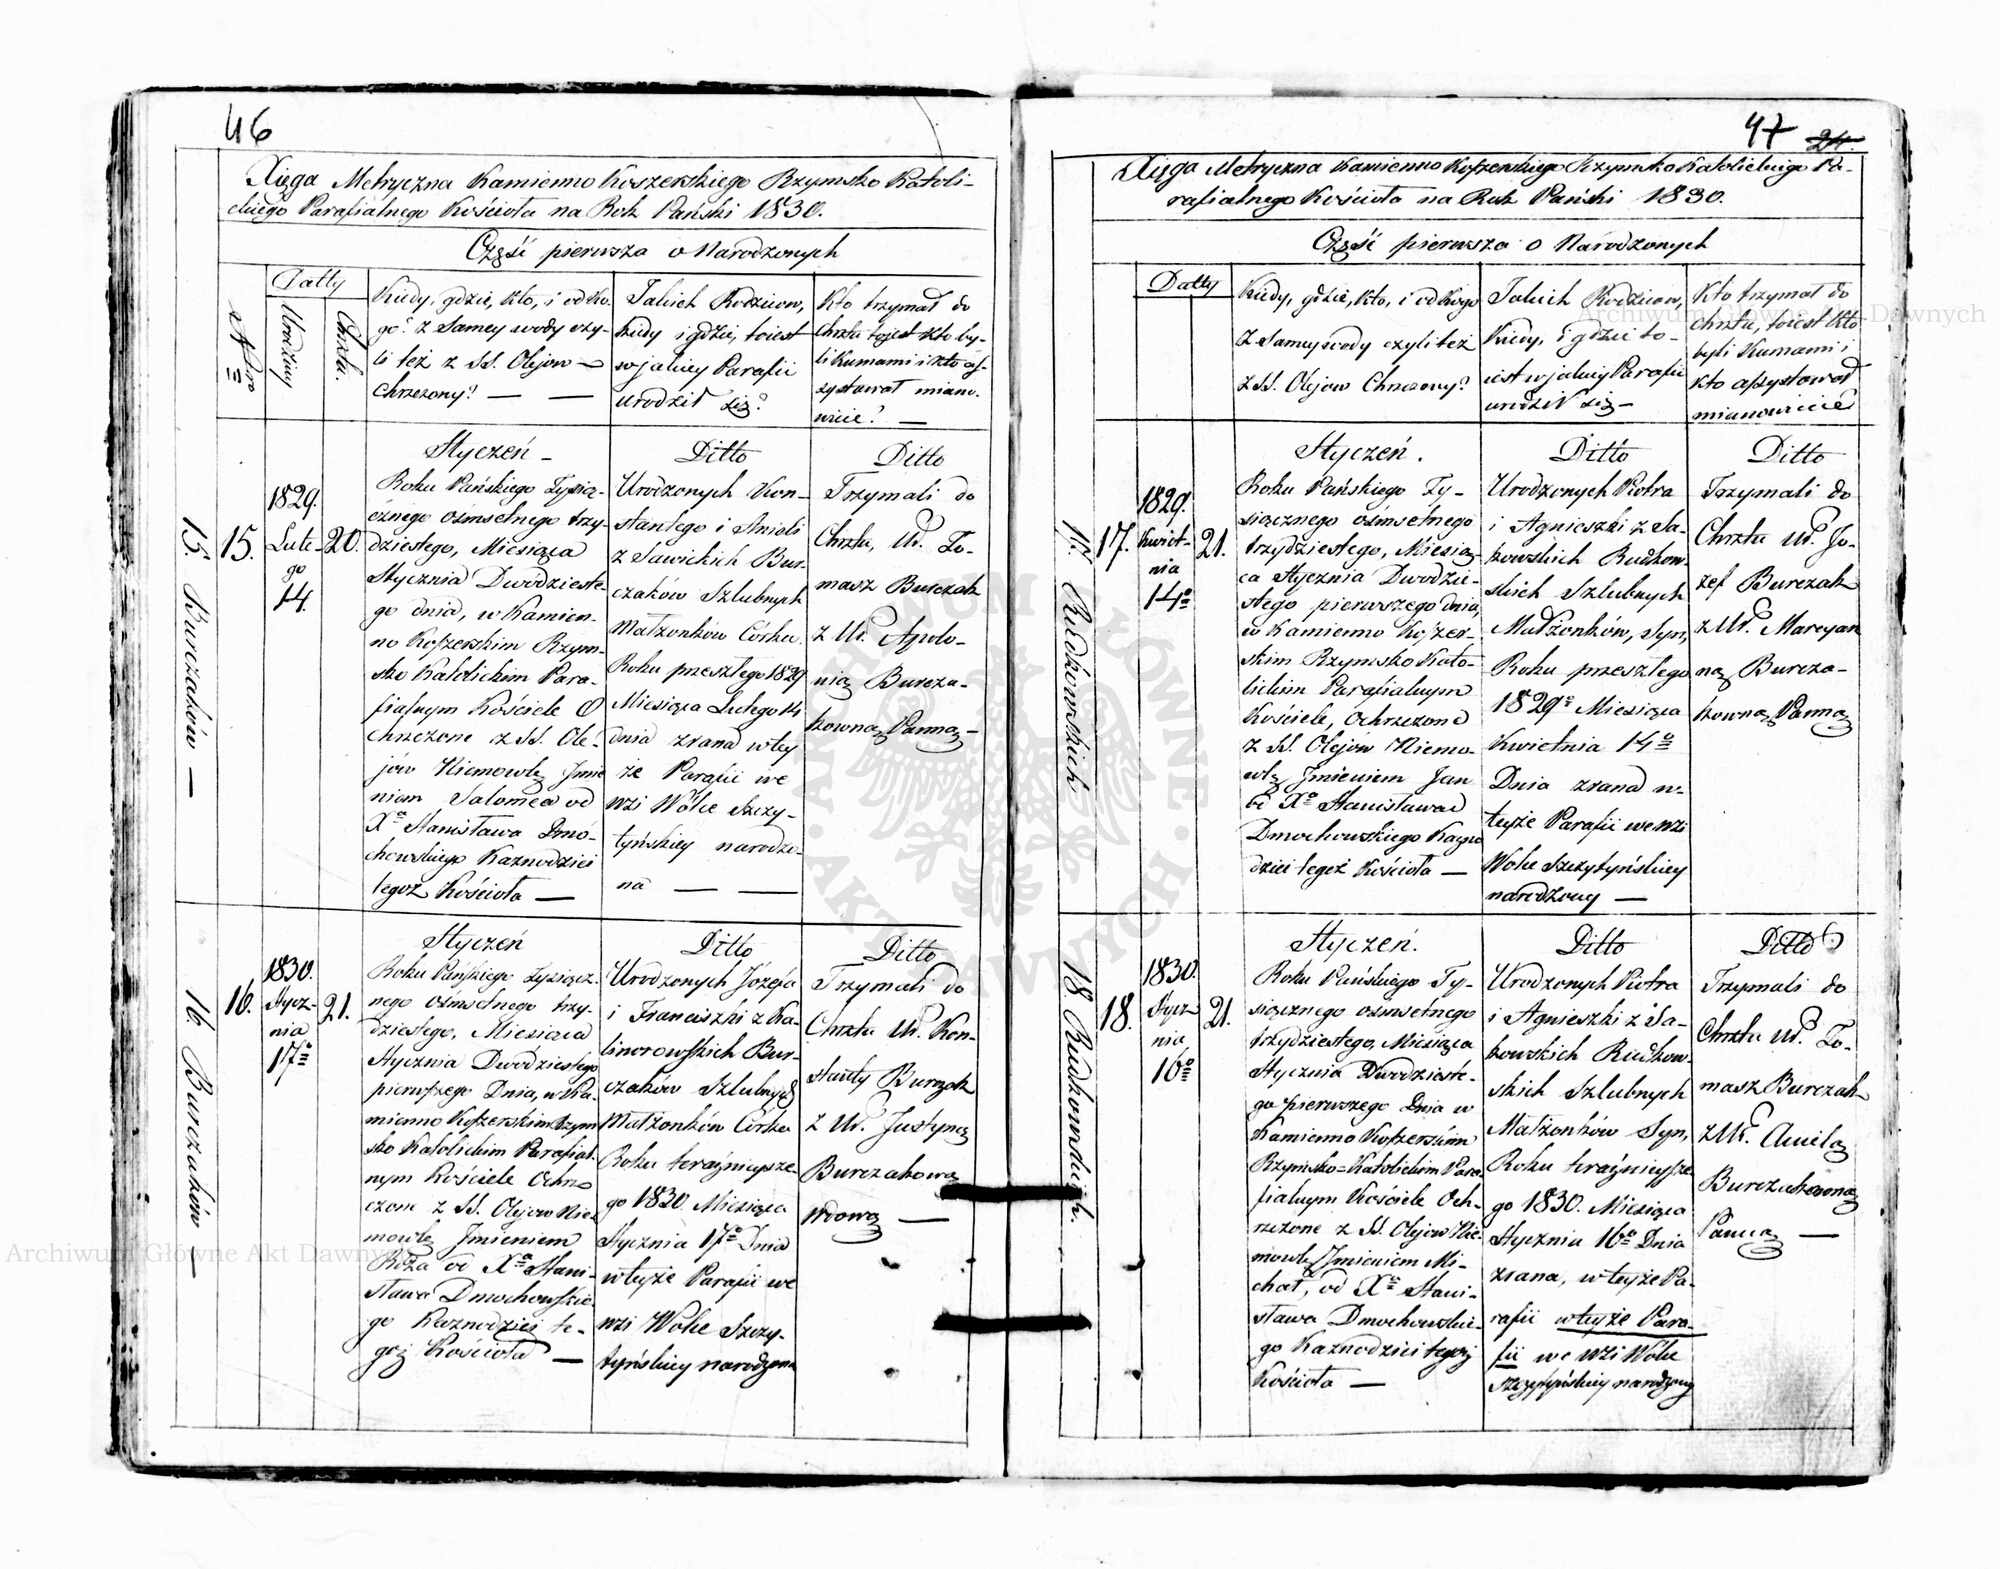 46
Xięga Metryczna Kamienno Koszerskiego Rzymsko Katoli-
ckiego Parafialnego Kościoła na Rok Pański 1830.
Część pierwsza o Narodzonych
Nro
Datty
Urodziny
Chrztu.
Kiedy, gdzie, kto, i od ko-
go? z Samey wody czy-
li też z SS. Olejow –
Chrzczony? — —
Jakich Rodzicow,
kiedy i gdzie, toiest
w jakiey Parafii
urodził się?
Kto trzymał do
Chrztu toiest kto by-
li Kumami i kto as-
zystawał miano-
wicie? —
15 Burczaków —
15.
1829.
Lute-
go
14.
20.
Styczeń –
Roku Pańskiego Tysią-
cznego ośmsetnego trzy-
dziestego, Miesiąca
Stycznia Dwodzieste-
go dnia, w Kamien-
no Koszerskim Rzym-
sko Katolickim Para-
fialnym Kościele O
chrzczone z SS. Ole-
jow Niemowlę Jmie
niem Salomea od
Xa Stanisława Dmó-
chowskiego Kaznodziei
tegoż Kościoła —
Ditto
Urodzonych Kon-
stantego i Anieli
z Sawickich Bur-
czaków Szlubnych
Małżonków Córka
Roku przeszłego 1829
Miesiąca Lutego 14
dnia zrana w tey
że Parafii we
wsi Wólce Szczy-
tyńskiey narodzo-
na — —
Ditto
Trzymali do
Chrztu, Ur. To-
masz Burczak
z Ur. Apolo-
nią Burcza-
kowną Panną –
16 Burczaków —
16.
1830.
Stycz-
nia
17o
21.
Styczeń
Roku Pańskiego Tysiącz-
nego ośmsetnego trzy-
dziestego, Miesiąca
Stycznia Dwodziestego
pierwszego Dnia, w Ka-
mienno Koszerskim Rzym
sko Katolickim Parafial-
nym Kościele Ochrz
czone z SS. Olejow Nie-
mowlę Jmieniem
Róża od Xa Stani-
sława Dmochowskie-
go Kaznodziei te-
goż Kościoła —
Ditto
Urodzonych Józefa
i Franciszki z Ka-
linorowskich Bur-
czaków Szlubnych
Małżonków Córka
Roku teraźnieysze-
go 1830. Miesiąca
Stycznia 17o Dnia
w teyże Parafii we
wsi Wólce Szczy-
tyńskiey narodzona
Ditto
Trzymali do
Chrztu Ur. Kon-
stanty Burczak
z Ur. Justyną
Burczakową
Wdową —
47 24.
Xięga Metryczna Kamienno Koszerskiego Rzymsko Katolickiego Pa-
rafialnego Kościoła na Rok Pański 1830.
Część pierwsza o Narodzonych
Datty
Kiedy, gdzie, kto, i od kogo
z Samey wody czyli też
z SS. Olejow Chrzczony?
Jakich Rodzicow,
Kiedy, i gdzie to-
iest w jakiey Parafii
urodził się –
Kto trzymał do
chrztu, toiest kto
byli Kumami i
kto assystował
mianowicie
17. Rudkowskich.
17.
1829.
Kwiet-
nia
14o
21.
Styczeń.
Roku Pańskiego Ty-
siącznego ośmsetnego
trzydziestego, Miesią-
ca Stycznia Dwodzie-
stego pierwszego dnia,
w Kamienno Koszer-
skim Rzymsko Kato-
lickim Parafialnym
Kościele, Ochrzczone
z SS. Olejów Niemo-
wlę Jmieniem Jan
od Xa Stanisława
Dmochowskiego Kazno
dziei tegoż Kościoła —
Ditto
Urodzonych Piotra
i Agnieszki z Sa-
kowskich Rudkow-
skich Szlubnych
Małżonków, Syn,
Roku przeszłego
1829o Miesiąca
Kwietnia 14o
Dnia zrana w-
teyże Parafii we wsi
Wolce Szczytyńskiey
narodzony —
Ditto
Trzymali do
Chrztu Ur. Jo-
zef Burczak
z Ur. Marcyan
ną Burcza-
kowną Panną
18. Rudkowskich.
18.
1830.
Stycz
nia
16o
21.
Styczeń.
Roku Pańskiego Ty-
siącznego ośmsetnego
trzydziestego, Miesiąca
Stycznia Dwodzieste-
go pierwszego Dnia w
Kamienno Koszerskim
Rzymsko-Katolickim Para-
fialnym Kościele Och-
rzczone z SS. Olejow Nie-
mowlę Jmieniem Mi-
chał, od Xa Stani-
sława Dmochowskie-
go Kaznodziei tegoż
Kościoła —
Ditto
Urodzonych Piotra
i Agnieszki z Sa-
kowskich Rudkow-
skich Szlubnych
Małżonków Syn,
Roku teraźnieysze
go 1830. Miesiąca
Stycznia 16o Dnia
zrana, w teyże Pa-
rafii w teyże Para-
fii we wsi Wólce
Szczytyńskiey narodzony
Ditto
Trzymali do
Chrztu Ur. To-
masz Burczak
z Ur. Anielą
Burczakowną
Panną —
Archiwum Główne Akt Dawnych
Archiwum Główne Akt Dawnych
ARCHIWUM GŁÓWNE AKT DAWNYCH